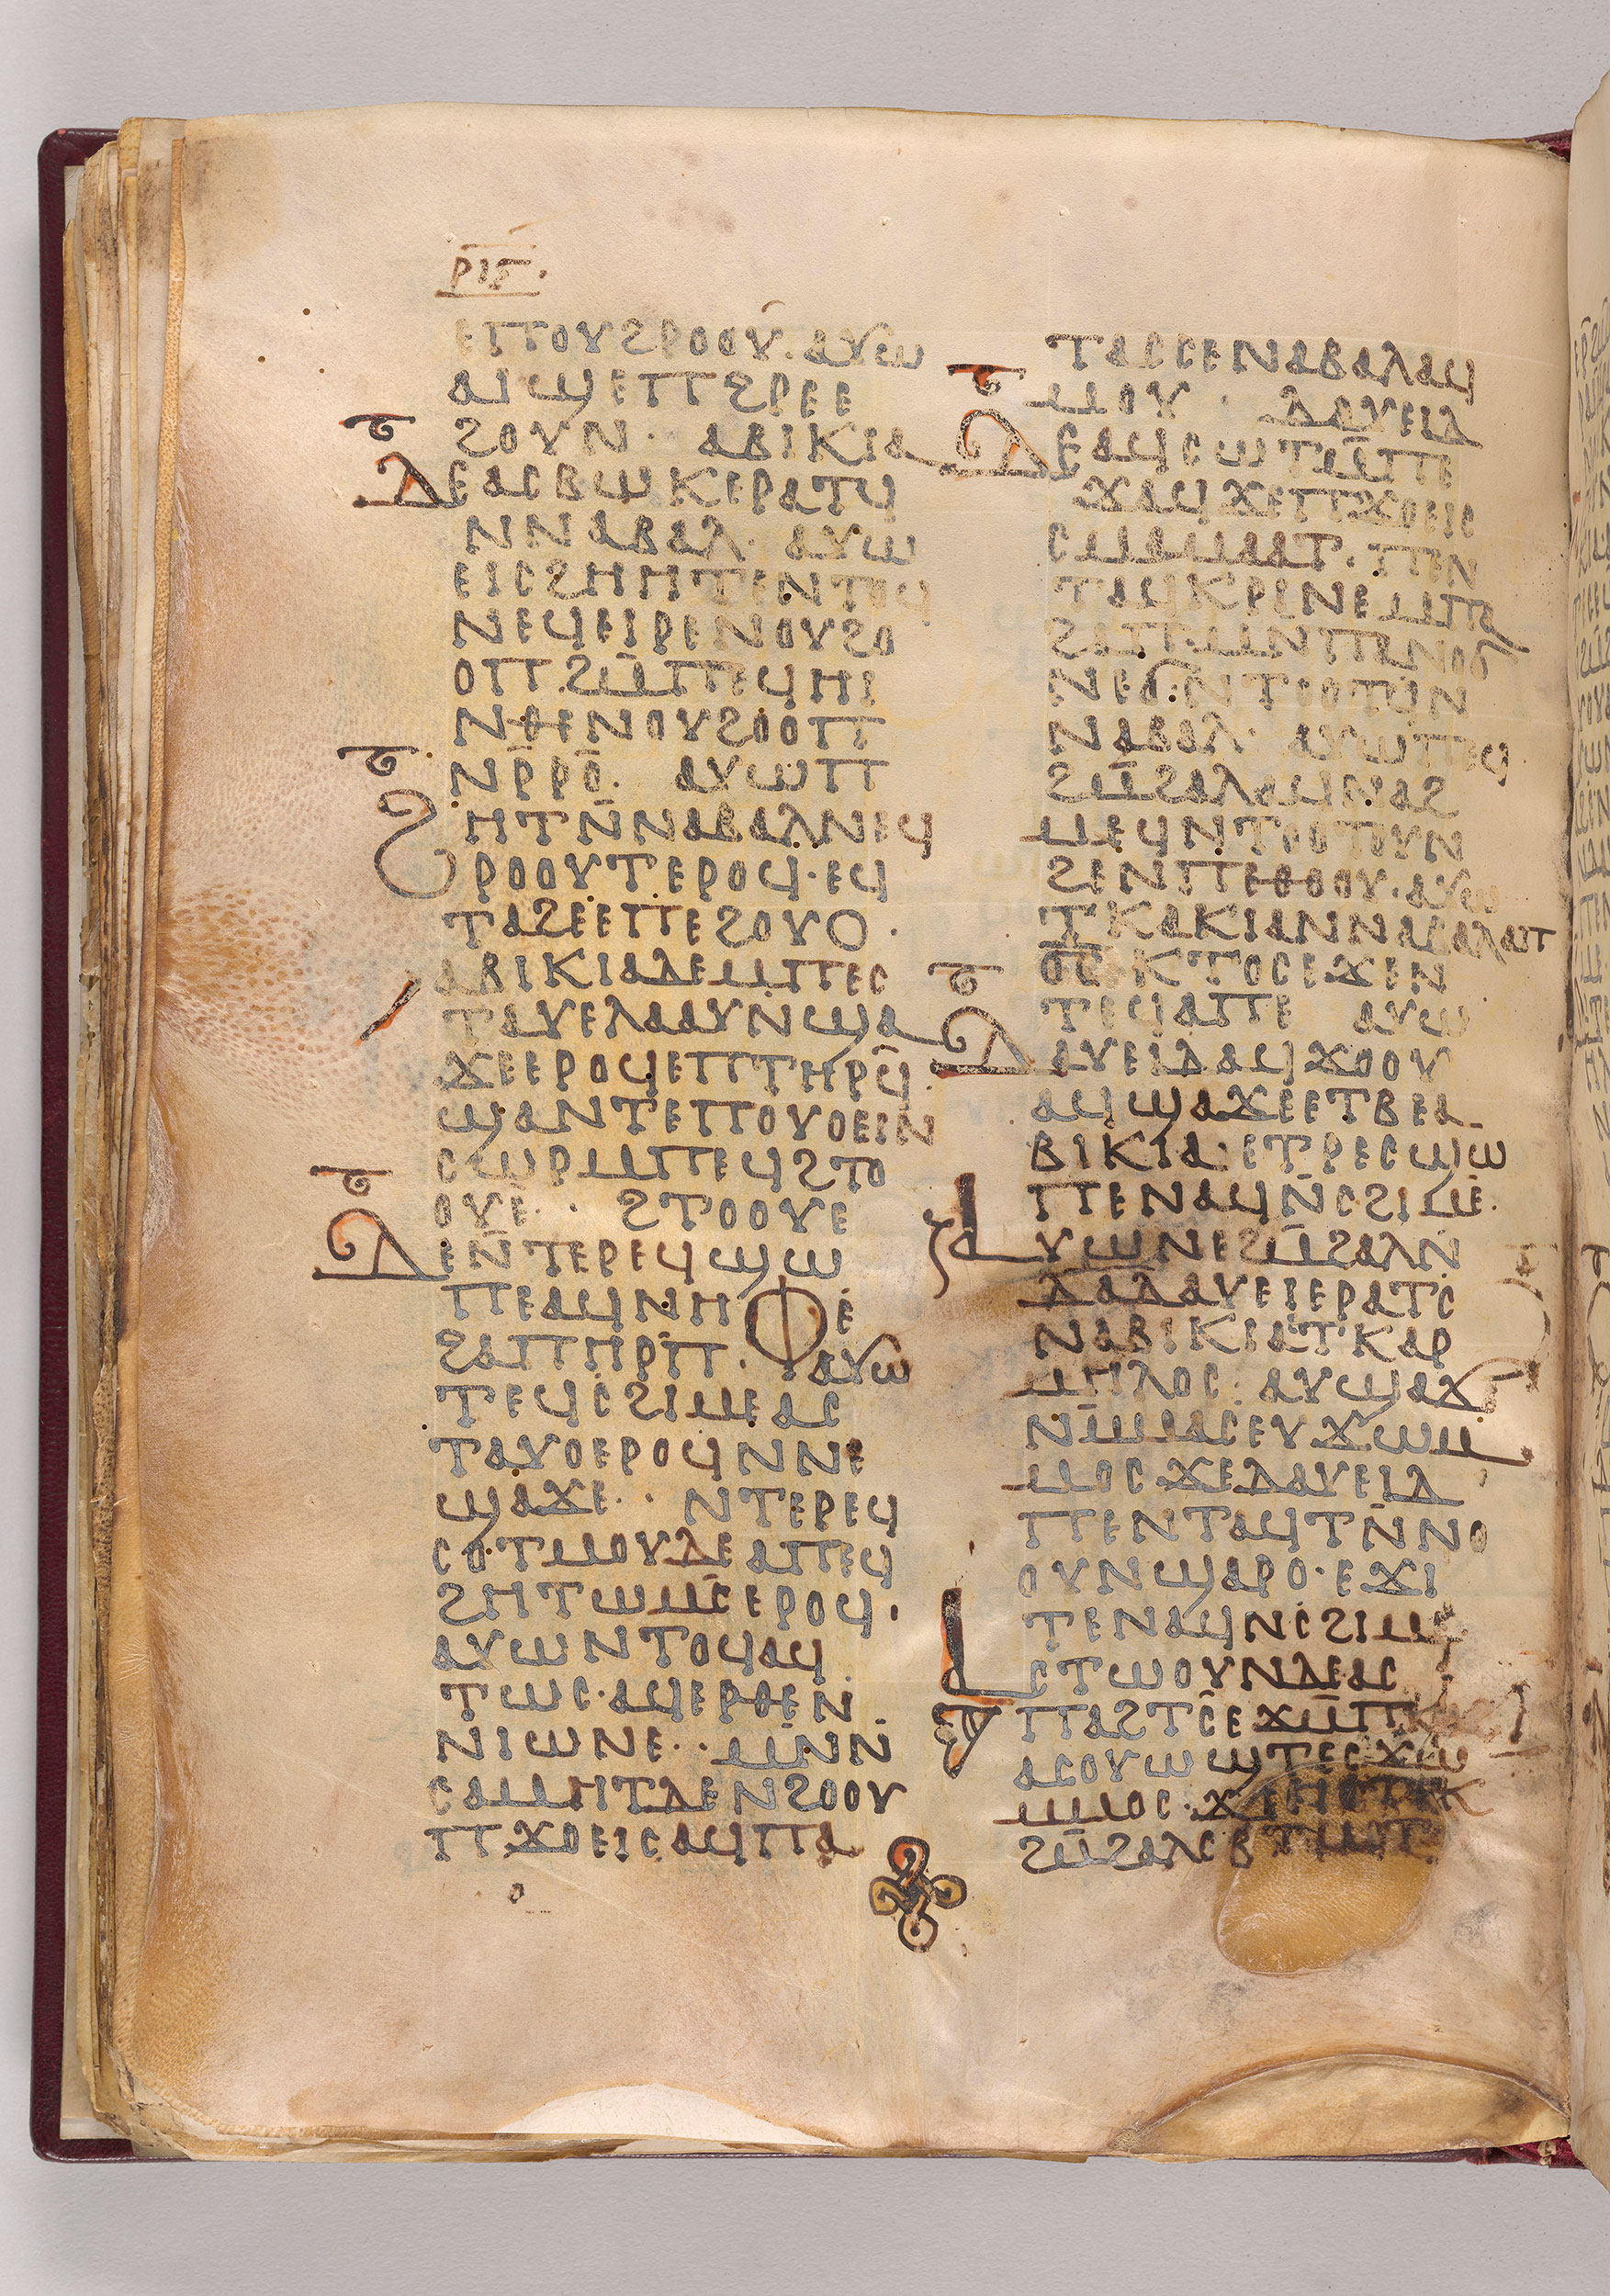 ⲣⲓⲋ
ⲉⲡⲟⲩϩⲣⲟⲟⲩ· ⲁⲩⲱ
ⲁⲓϣⲉⲡⲡϩⲣⲉⲉ
ϩⲟⲩⲛ· ⲁⲃⲓⲕⲓⲁ
ⲇⲉⲁⲥⲃⲱⲕⲉⲣⲁⲧϥ
ⲛⲛⲁⲃⲁⲗ· ⲁⲩⲱ
ⲉⲓⲥϩⲏⲏⲧⲉⲛⲧⲟϥ
ⲛⲉϥⲉⲓⲣⲉⲛⲟⲩϩⲟ
ⲟⲡ ϩⲙ̄ⲡⲉϥⲏⲓ
ⲛⲑⲉⲛⲟⲩϩⲟⲟⲡ
ⲛⲣ̄ⲣⲟ̄· ⲁⲩⲱⲡ
ϩⲏⲧⲛ̄ⲛⲁⲃⲁⲗⲛⲉϥ
ⲣⲟⲟⲩⲧⲉⲣⲟϥ·ⲉϥ
ⲧⲁϩⲉⲉⲡⲉϩⲟⲩⲟ·
ⲁⲃⲓⲕⲓⲁⲇⲉⲙⲡⲉⲥ
ⲧⲁⲩⲉⲗⲁⲁⲩⲛ̇ϣⲁ
ϫⲉⲉⲣⲟϥⲉⲡⲧⲏⲣϥ̄·
ϣⲁⲛⲧⲉⲡⲟⲩⲟⲉⲓⲛ
ⲥⲱⲣⲙⲡⲉϥϩⲧⲟ
ⲟⲩⲉ· · ϩⲧⲟⲟⲩⲉ
ⲇⲉⲛ̄ⲧⲉⲣⲉϥϣⲱ
ⲡⲉⲁϥⲛⲏⲫⲉ
ϩⲁⲡⲏⲣⲡ̄· ⲁⲩⲱ
ⲧⲉϥⲥϩⲓⲙⲉⲁⲥ
ⲧⲁⲩⲟⲉⲣⲟϥⲛⲛⲉ
ϣⲁϫⲉ· · ⲛⲧⲉⲣⲉϥ
ⲥⲟⲧⲙⲟⲩⲇⲉⲁⲡⲉϥ
ϩⲏⲧⲱⲙ̄ⲥⲉⲣⲟϥ·
ⲁⲩⲱⲛⲧⲟϥⲁϥ
ⲧⲱⲥ·ⲁϥⲉⲣⲑⲉⲛ
ⲛⲓⲱⲛⲉ· · ⲙⲛ̄ⲛ̇
ⲥⲁⲙⲏⲧⲇⲉⲛϩⲟⲟⲩ
ⲡϫⲟⲉⲓⲥⲁϥⲡⲁ
ⲧⲁⲥⲥⲉⲛⲁⲃⲁⲗⲁϥ
ⲙⲟⲩ· ⲇⲁⲩⲉⲓⲇ
ⲇⲉⲁϥⲥⲱⲧⲙ̄ⲡⲉ
ϫⲁϥϫⲉⲡϫⲟⲉⲓⲥ
ⲥⲙⲁⲙⲁⲁⲧ· ⲡⲉⲛ
ⲧⲁϥⲕⲣⲓⲛⲉⲙⲡϩ
ϩⲁⲡ·ⲙⲛⲡⲁⲛⲟϭ
ⲛⲉϭ·ⲛⲧⲟⲟⲧϥⲛ
ⲛⲁⲃⲁⲗ· ⲁⲩⲱⲡⲉϥ
ϩⲙ̄ϩⲁⲗⲁϥⲛⲁϩ
ⲙⲉϥⲛⲧⲟⲟⲧⲟⲩⲛ
ϩⲉⲛⲡⲉⲑⲟⲟⲩ·ⲁⲩⲱ
ⲧⲕⲁⲕⲓⲁⲛⲛⲁⲃⲁⲗⲁⲡϫ
ⲟ̅ⲥ̅ ⲕⲧⲟⲥⲉϫⲉⲛ
ⲧⲉϥⲁⲡⲉ ⲁⲩⲱ
ⲇⲁⲩⲉⲓⲇⲁϥϫⲟⲟⲩ
ⲁϥϣⲁϫⲉⲉⲧⲃⲉⲁ
ⲃⲓⲕⲓⲁ·ⲉⲧⲣⲉⲥϣⲱ
ⲡⲉⲛⲁϥⲛ̄ⲥϩⲓⲙⲉ·
ⲁⲩⲱⲛⲉϩⲙ̄ϩⲁⲗⲛ̄
ⲇⲁⲇⲁⲩⲉⲓⲉⲣⲁⲧⲥ
ⲛⲁⲃⲓⲕⲓⲁⲧⲕⲁⲣ
ⲙⲏⲗⲟⲥ· ⲁⲩϣⲁϫ
ⲛⲙⲙⲁⲥⲉⲩϫⲱⲙ
ⲙⲟⲥϫⲉⲇⲁⲩⲉⲓⲇ
ⲡⲉⲛⲧⲁϥⲧⲛ̄ⲛⲟ
ⲟⲩⲛϣⲁⲣⲟ·ⲉϫⲓ
ⲧⲉⲛⲁϥⲛⲥϩⲓⲙⲉ·
ⲁⲥⲧⲱⲟⲩⲛⲇⲉⲁⲥ
ⲡⲁϩⲧⲥ̄ⲉϫⲙ̄ⲡ
ⲁⲥⲟⲩⲱϣⲧⲉⲥϫⲱ
ⲙⲙⲟⲥ·
ϩⲙ̄ϩⲁⲗⲉ